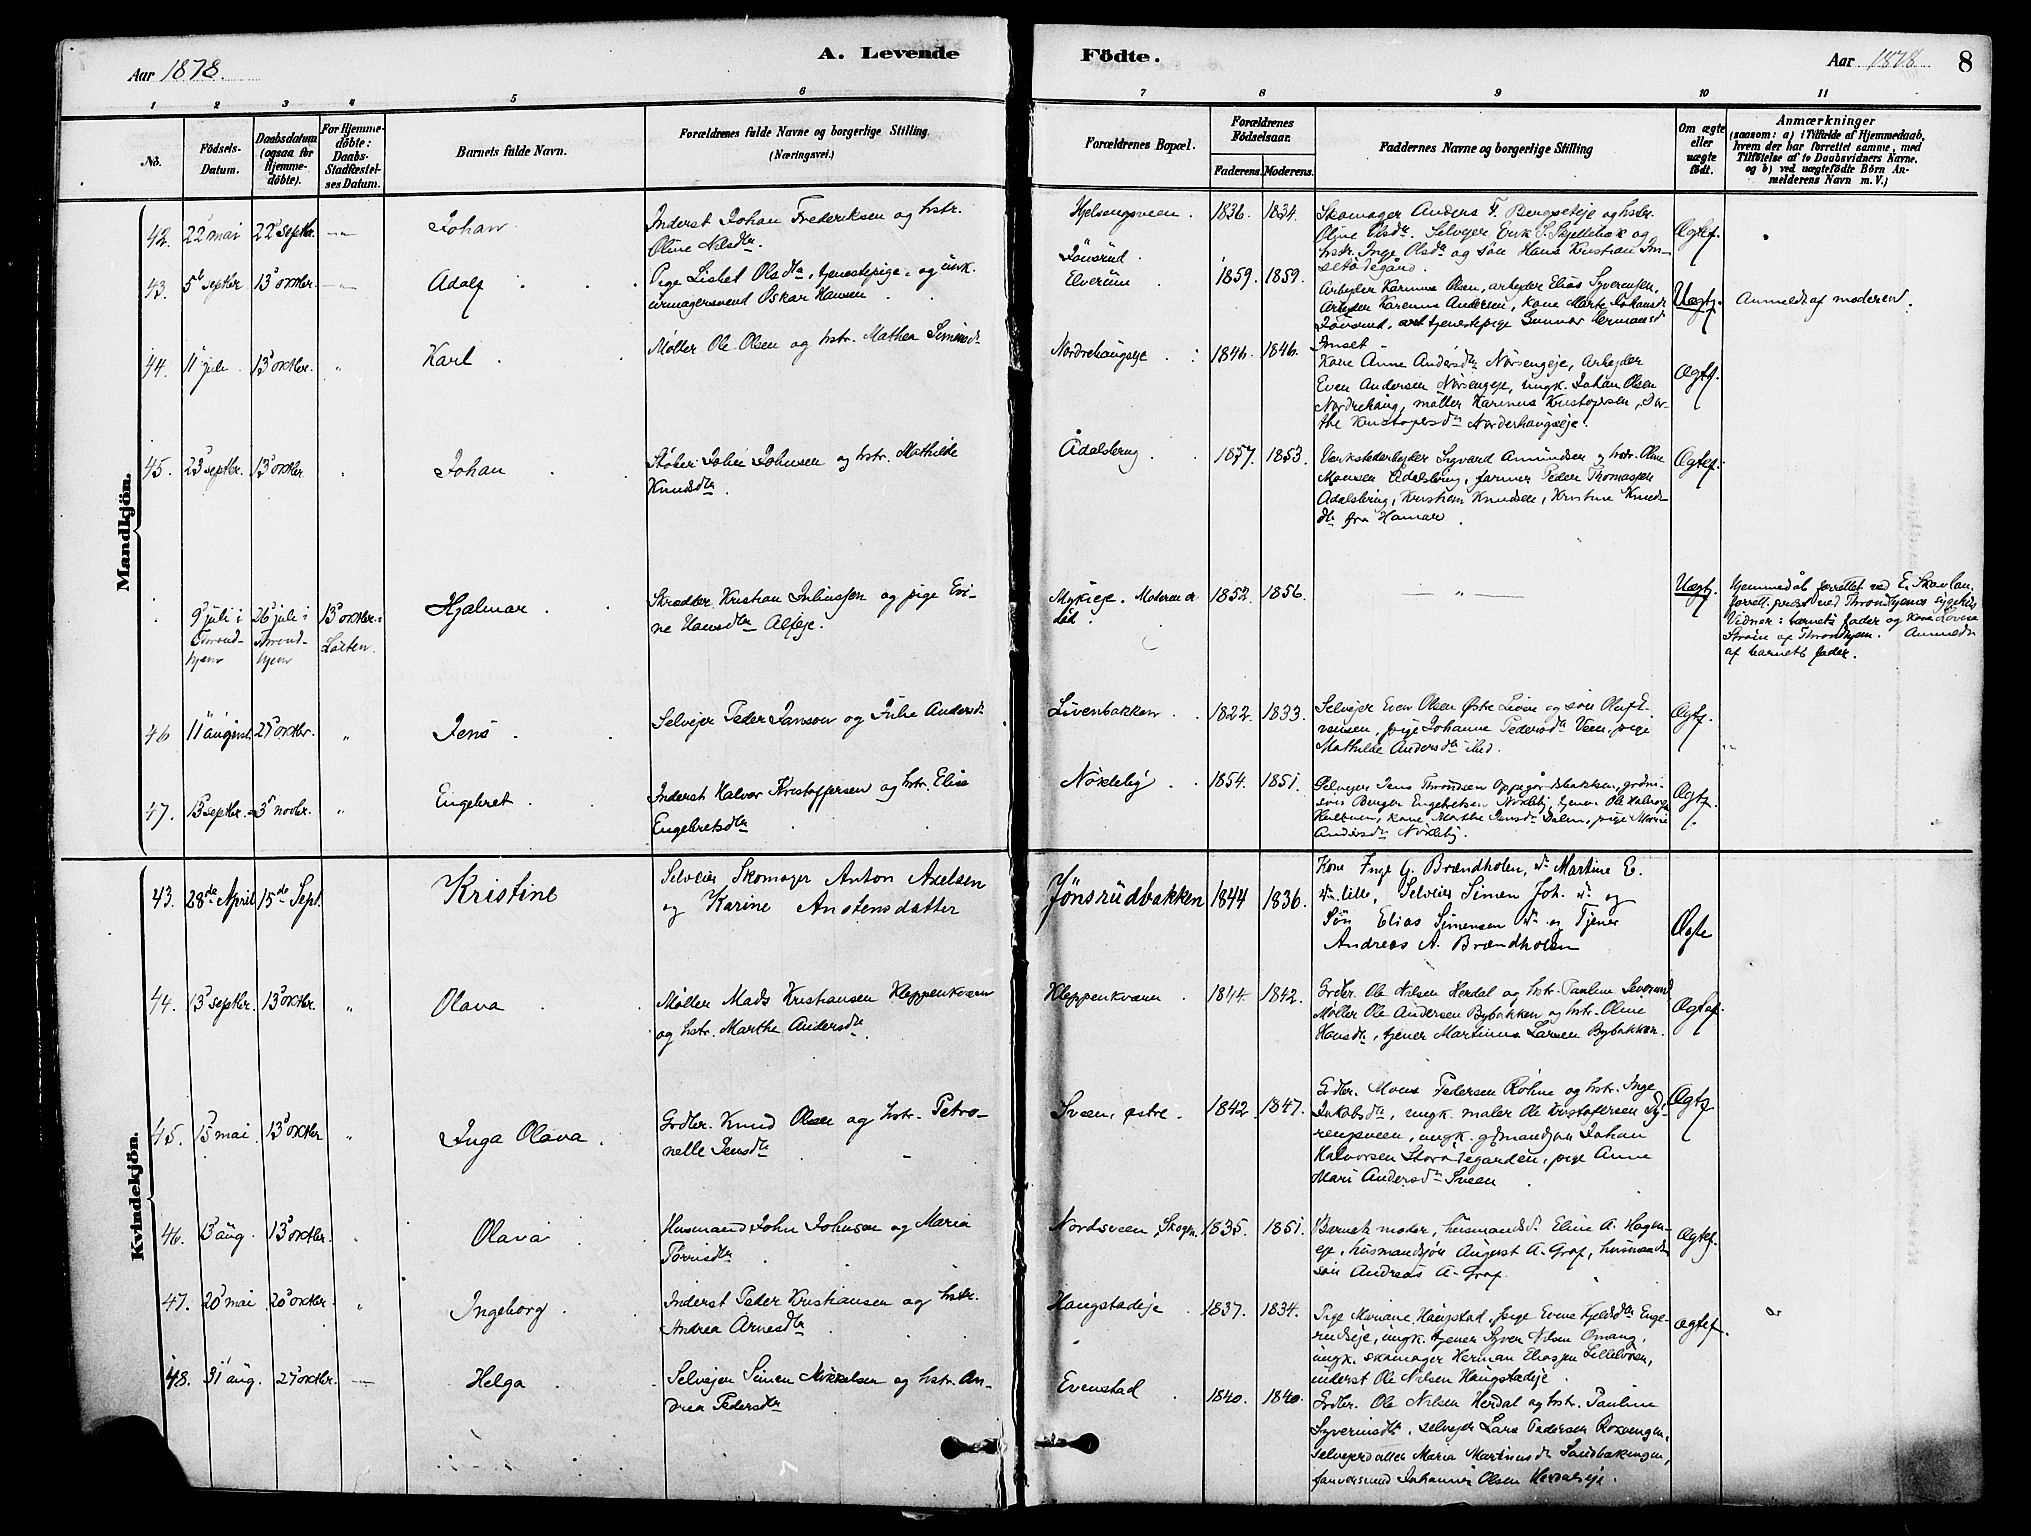 Aar 1878.
A. Levende
Födte.
Aar 1878.
8
1 2 3 4 5 6 7 8 9 10 11
No.
Födsels-
Datum.
Daabsdatum
(ogsaa for
Hjemme-
döbte).
For Hjemme-
döbte:
Daabs-
Stadfæstel-
ses Datum.
Barnets fulde Navn.
Forældrenes fulde Navne og borgerlige Stilling.
(Næringsvei.)
Forældrenes Bopæl.
Forældrenes
Födselsaar.
Faderens. Moderens.
Faddernes Navne og borgerlige Stilling
Om ægte
eller
uægte
født.
Anmærkninger
(saasom: a) i Tilfælde af Hjemmedaab,
hvem der har forrettet samme, med
Tilföielse af to Daabsvidners Navne.
og b) ved uægtefödte Börn An-
melderens Navn m. V.)
Mandkjön.
42. 22 mai 22 septbr. Johan
Inderst Johan Frederiksen og hstr.
Oline Nilsdtr.
Hjelsengsveen. 1836. 1834.
Skomager Anders F. Bergseteje og hstr.
Oline Olsdtr. Selvejer Erik S. Skjellebæk og
hstr. Inge Olsdtr og søn Hans Kristian In-
setødegård.
Ægtef.
43. 5 septbr 13 oktbr. Adolf
Pige Lisbet Olsdtr, tjenestepige, og ungk.
urmagersvend Oskar Hansen
Jönsrud
Elverum 1859. 1859.
Arbejder Karinus Olsen, arbejder Elias Syversen,
Arbejder Karenus Andersen, kone Marte Johansdtr
Jönsrud, tjenestepige Gunnor Hermansd
Inset
Uægtf. Anmeldt af moderen.
44. 11 juli 13 oktbr. Karl
Møller Ole Olsen og hstr. Mathea Simensdtr
Nordrehaugseje 1846. 1846.
Kone Anne Andersdtr Norsengeje, Arbejder
Even Andersen Norsengeje, ungk. Johan Olsen
Nordrehaug, møller Karinus Kristofersen, Dor-
the Kristofersdtr Norderhaugseje.
Ægtf.
45. 23 septbr. 13 oktbr. Johan
Støber John Johnsen og hstr. Mathilde
Knudsdtr.
Ådalsbrug 1857. 1853.
Værkstedarbejder Sigvard Amundsen og hstr. Oline
Monsen Ådalsbrug, former Peder Thomassen
Adalsbrug, Kristian Knudsen, Kristine Knuds-
dtr fra Hamar.
Ægtef.
9 juli i
Trond-
hjem
26 juli i
Thrond-
hjem
13 oktbr. i
Løiten.
Hjalmar
Skrædder Kristian Juliussen og pige Eri-
ne Hansdtr Alfseje.
Mykleje. Moderen er
død. 1852. 1856.
Uægtf.
Hjemmedåb forrettet ved E. Skavlan
forrett. præst ved Throndhjems sygehus
Vidner: barnets fader og kone Lovise
Strøm af Throndhjem. Anmeldt
af barnets fader.
46 11 august. 27 oktbr. Jens
Selvejer Peder Janson og Julie Andersdtr
Livenbakken 1822. 1833.
Selvejer Even Olsen Østre Liven og søn Oluf E-
vensen, pige Johanne Pedersdtr Veen, pige
Mathilde Andersdtr ibid.
Ægtf.
47. 13 septbr. 3 novbr. Engebret
Inderst Halvor Kristoffersen og hstr. Elise
Engebretsdtr
Nökleby 1854. 1851.
Selvejer Jens Throndsen Oppegårdsbakken, grdm.-
søn Berger Engebretsen Nökleby, tjener Ole Halvorsen
kone Marthe Jensdtr Dalen, pige Marie
Andersdtr Nökleby.
Ægtf.
Kvindekjön.
43. 28de April 15de Sept. Kristine
Selveier Skomager Anton Axelsen
og Karine Anstensdatter
Jönsrudbakken 1844 1836.
Kone Inge G. Brændholen, do Martine E.
do lille, Selveier Simen Joh. do og
Søn Elias Simensen do og Tjener
Andreas A. Brændholen
Ægte
44. 13 septbr. 13 oktbr. Olava
Møller Mads Kristiansen Kleppenkværn
og hstr. Marthe Andersdtr.
Kleppenkværn 1844. 1842.
Grdbr. Ole Nilsen Herdal og hstr. Pauline Severinsd
Møller Ole Andersen Bybakken og hstr. Oline
Hansdtr, tjener Martinus Larsen Bybakken.
Ægtef.
45. 15 mai 13 oktbr Inga Olava
Grdbr. Knud Olsen og hstr. Petro-
nelle Jensdtr
Sveen, østre 1842 1847.
Grdbr. Mons Pedersen Röhne og hstr. Inge
Jakobsdtr, ungk. maler Ole Kristofersen Dy-
rengsveen, ungk. gdmandssøn Johan
Halvorsen Storødegarden, pige Anne
Mari Andersdtr Sveen
Ægtf
46. 13 aug. 13 oktbr. Olava
Husmand John Johnsen og Maria
Törrisdtr
Nordsveen, Skogn. 1835. 1851.
Barnets moder, husmandsd. Eline A. Hagen-
eje, husmandssön August A. Graf, husmands-
sön Andreas A. Graf.
Ægtef.
47. 20 mai 20 oktbr. Ingeborg
Inderst Peder Kristiansen og hstr.
Andrea Arnesdtr
Haugstadeje 1837. 1834.
Pige Mariane Haugstad, pige Evine Kjeldsdtr Enge-
rudseje, ungk. tjener Syver Nilsen Omang,
ungk. skomager Herman Eliassen Lilleløven,
inderst Ole Nilsen Haugstadeje.
Ægtef.
48. 31 aug. 27 oktbr. Helga
Selvejer Simen Mikkelsen og hstr. An-
drea Pedersdtr
Evenstad 1840. 1840.
Grdbr. Ole Nilsen Herdal og hstr. Pauline
Syverinsdtr, selvejer Lars Pedersen Rokvengen,
selvejerdatter Maria Martinusd. Sandbakengen,
farversvend Johannes Olsen Herdalseje.